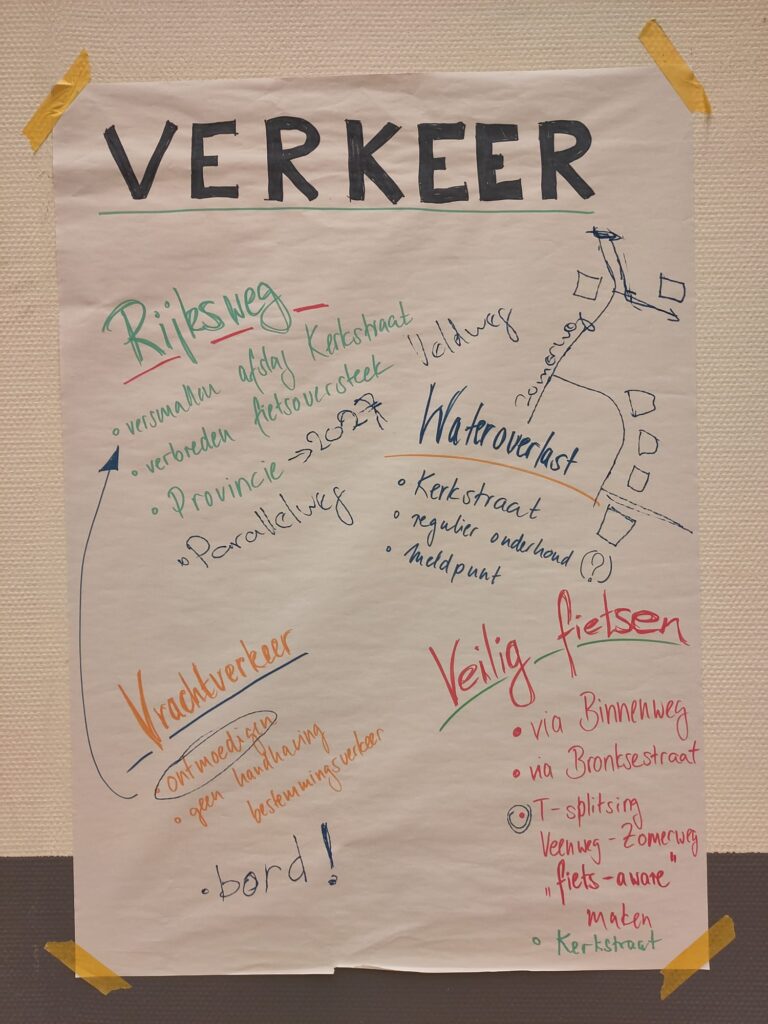 VERKEER
Rijksweg
• versmallen afslag Kerkstraat
• verbreden fietsoversteek Veldweg
• Provincie → 2027
• Parallelweg
Zomerweg
Wateroverlast
• Kerkstraat
• regulier onderhoud (?)
• meldpunt
Vrachtverkeer
• ontmoedigen
• geen handhaving
bestemmingsverkeer
• bord!
Veilig fietsen
• via Binnenweg
• via Bronksestraat
• T-splitsing
Veenweg - Zomerweg
„fiets-aware"
maken
• Kerkstraat